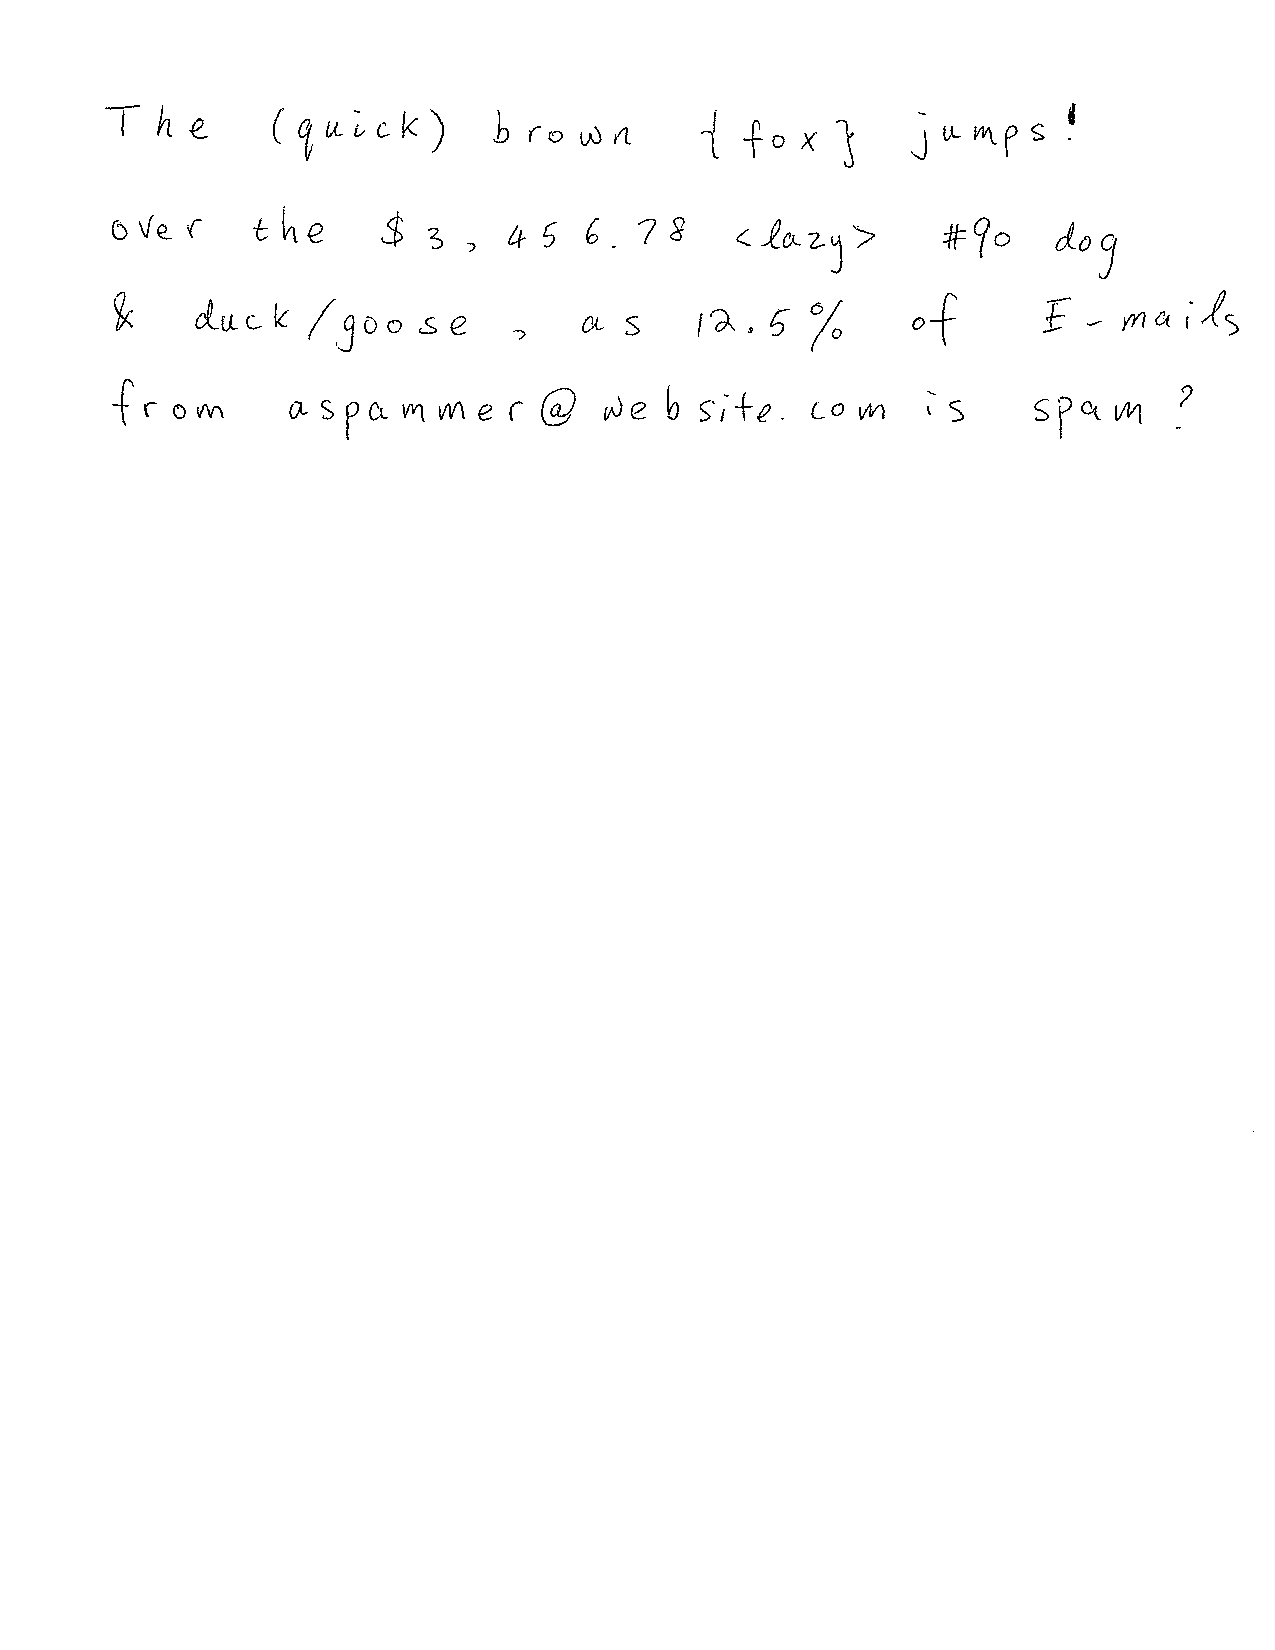 The (quick) brown {fox} jumps!
over the $3,456.78 <lazy> #90 dog
& duck/goose, as 12.5% of E-mails
from aspammer@website.com is spam?